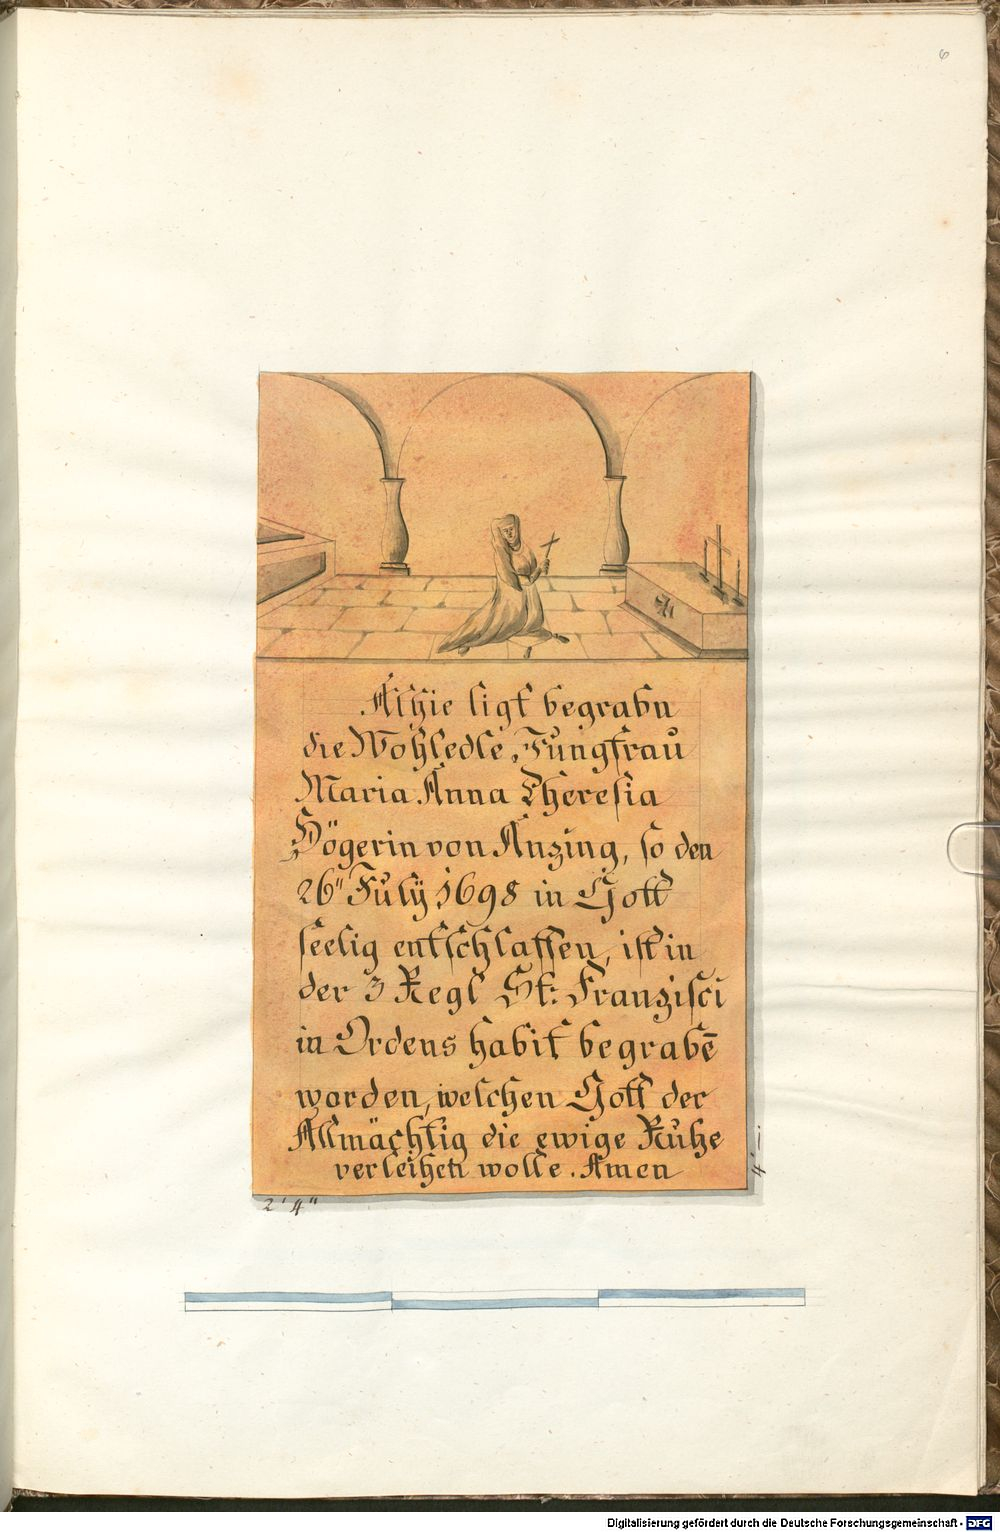 6
Alhie ligt begrabn
die Wohledle, Jungfrau
Maria Anna Theresia
Högerin von Anzing, so den
26" Julÿ 1698 in Gott
seelig entschlaffen, ist in
der 3 Regl St: Franzisci
in Ordens habit begrabē
worden, welchen Gott der
Allmächtig die ewige Ruhe
verleihen wolle. Amen
4'—
2' 4"
Digitalisierung gefördert durch die Deutsche Forschungsgemeinschaft - DFG